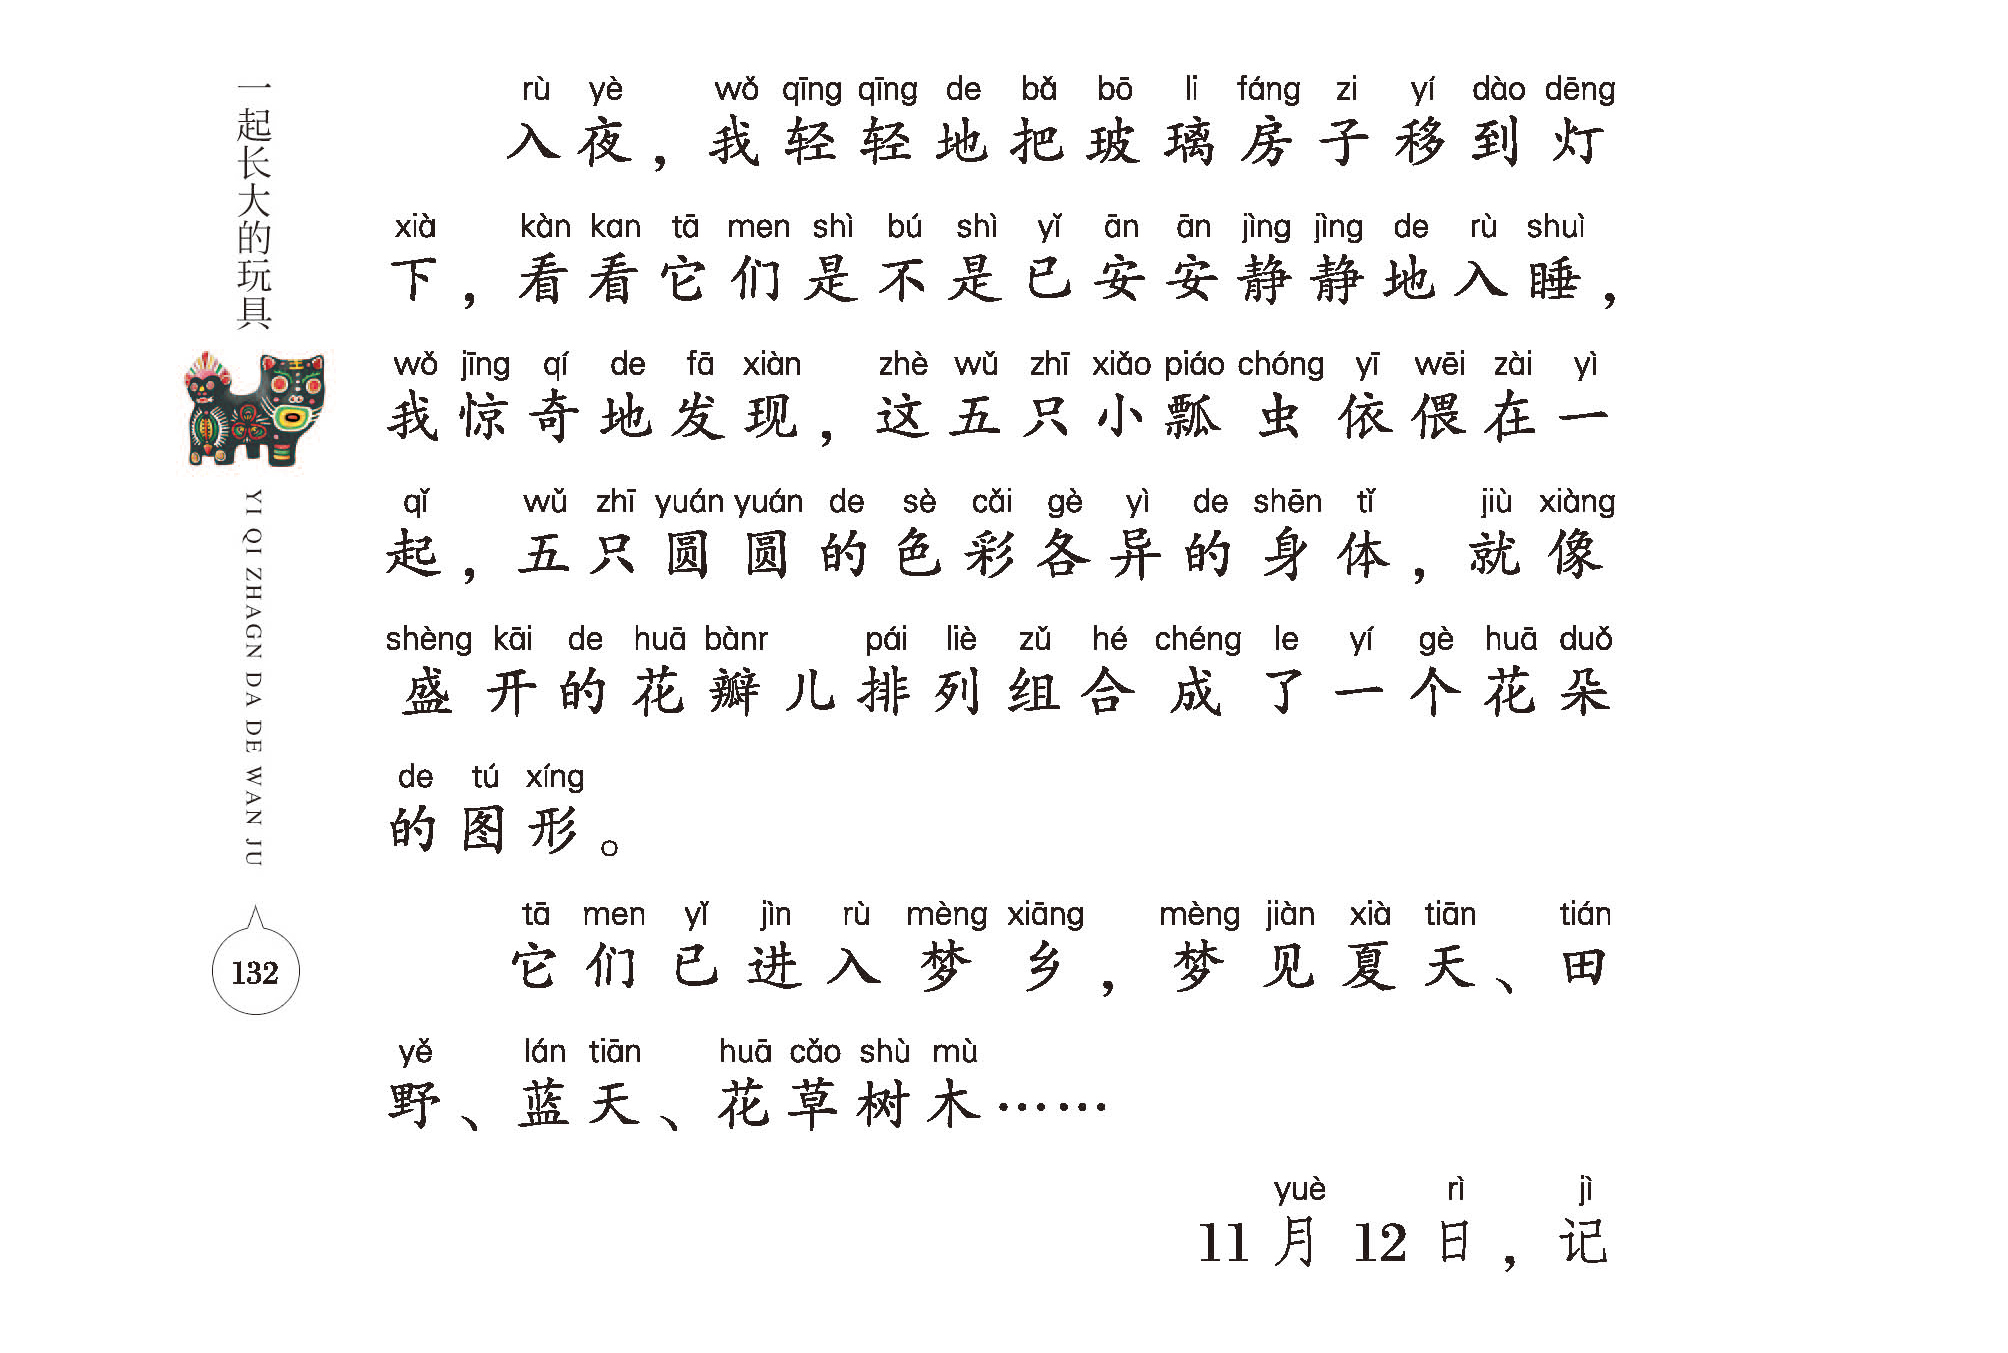 一起长大的玩具
YI QI ZHAGN DA DE WAN JU
132
rù yè wǒ qīng qīng de bǎ bō li fáng zi yí dào dēng
入夜，我轻轻地把玻璃房子移到灯
xià kàn kan tā men shì bú shì yǐ ān ān jìng jìng de rù shuì
下，看看它们是不是已安安静静地入睡，
wǒ jīng qí de fā xiàn zhè wǔ zhī xiǎo piáo chóng yī wēi zài yì
我惊奇地发现，这五只小瓢虫依偎在一
qǐ wǔ zhī yuán yuán de sè cǎi gè yì de shēn tǐ jiù xiàng
起，五只圆圆的色彩各异的身体，就像
shèng kāi de huā bànr pái liè zǔ hé chéng le yí gè huā duǒ
盛开的花瓣儿排列组合成了一个花朵
de tú xíng
的图形。
tā men yǐ jìn rù mèng xiāng mèng jiàn xià tiān tián
它们已进入梦乡，梦见夏天、田
yě lán tiān huā cǎo shù mù
野、蓝天、花草树木……
yuè rì jì
11月12日，记